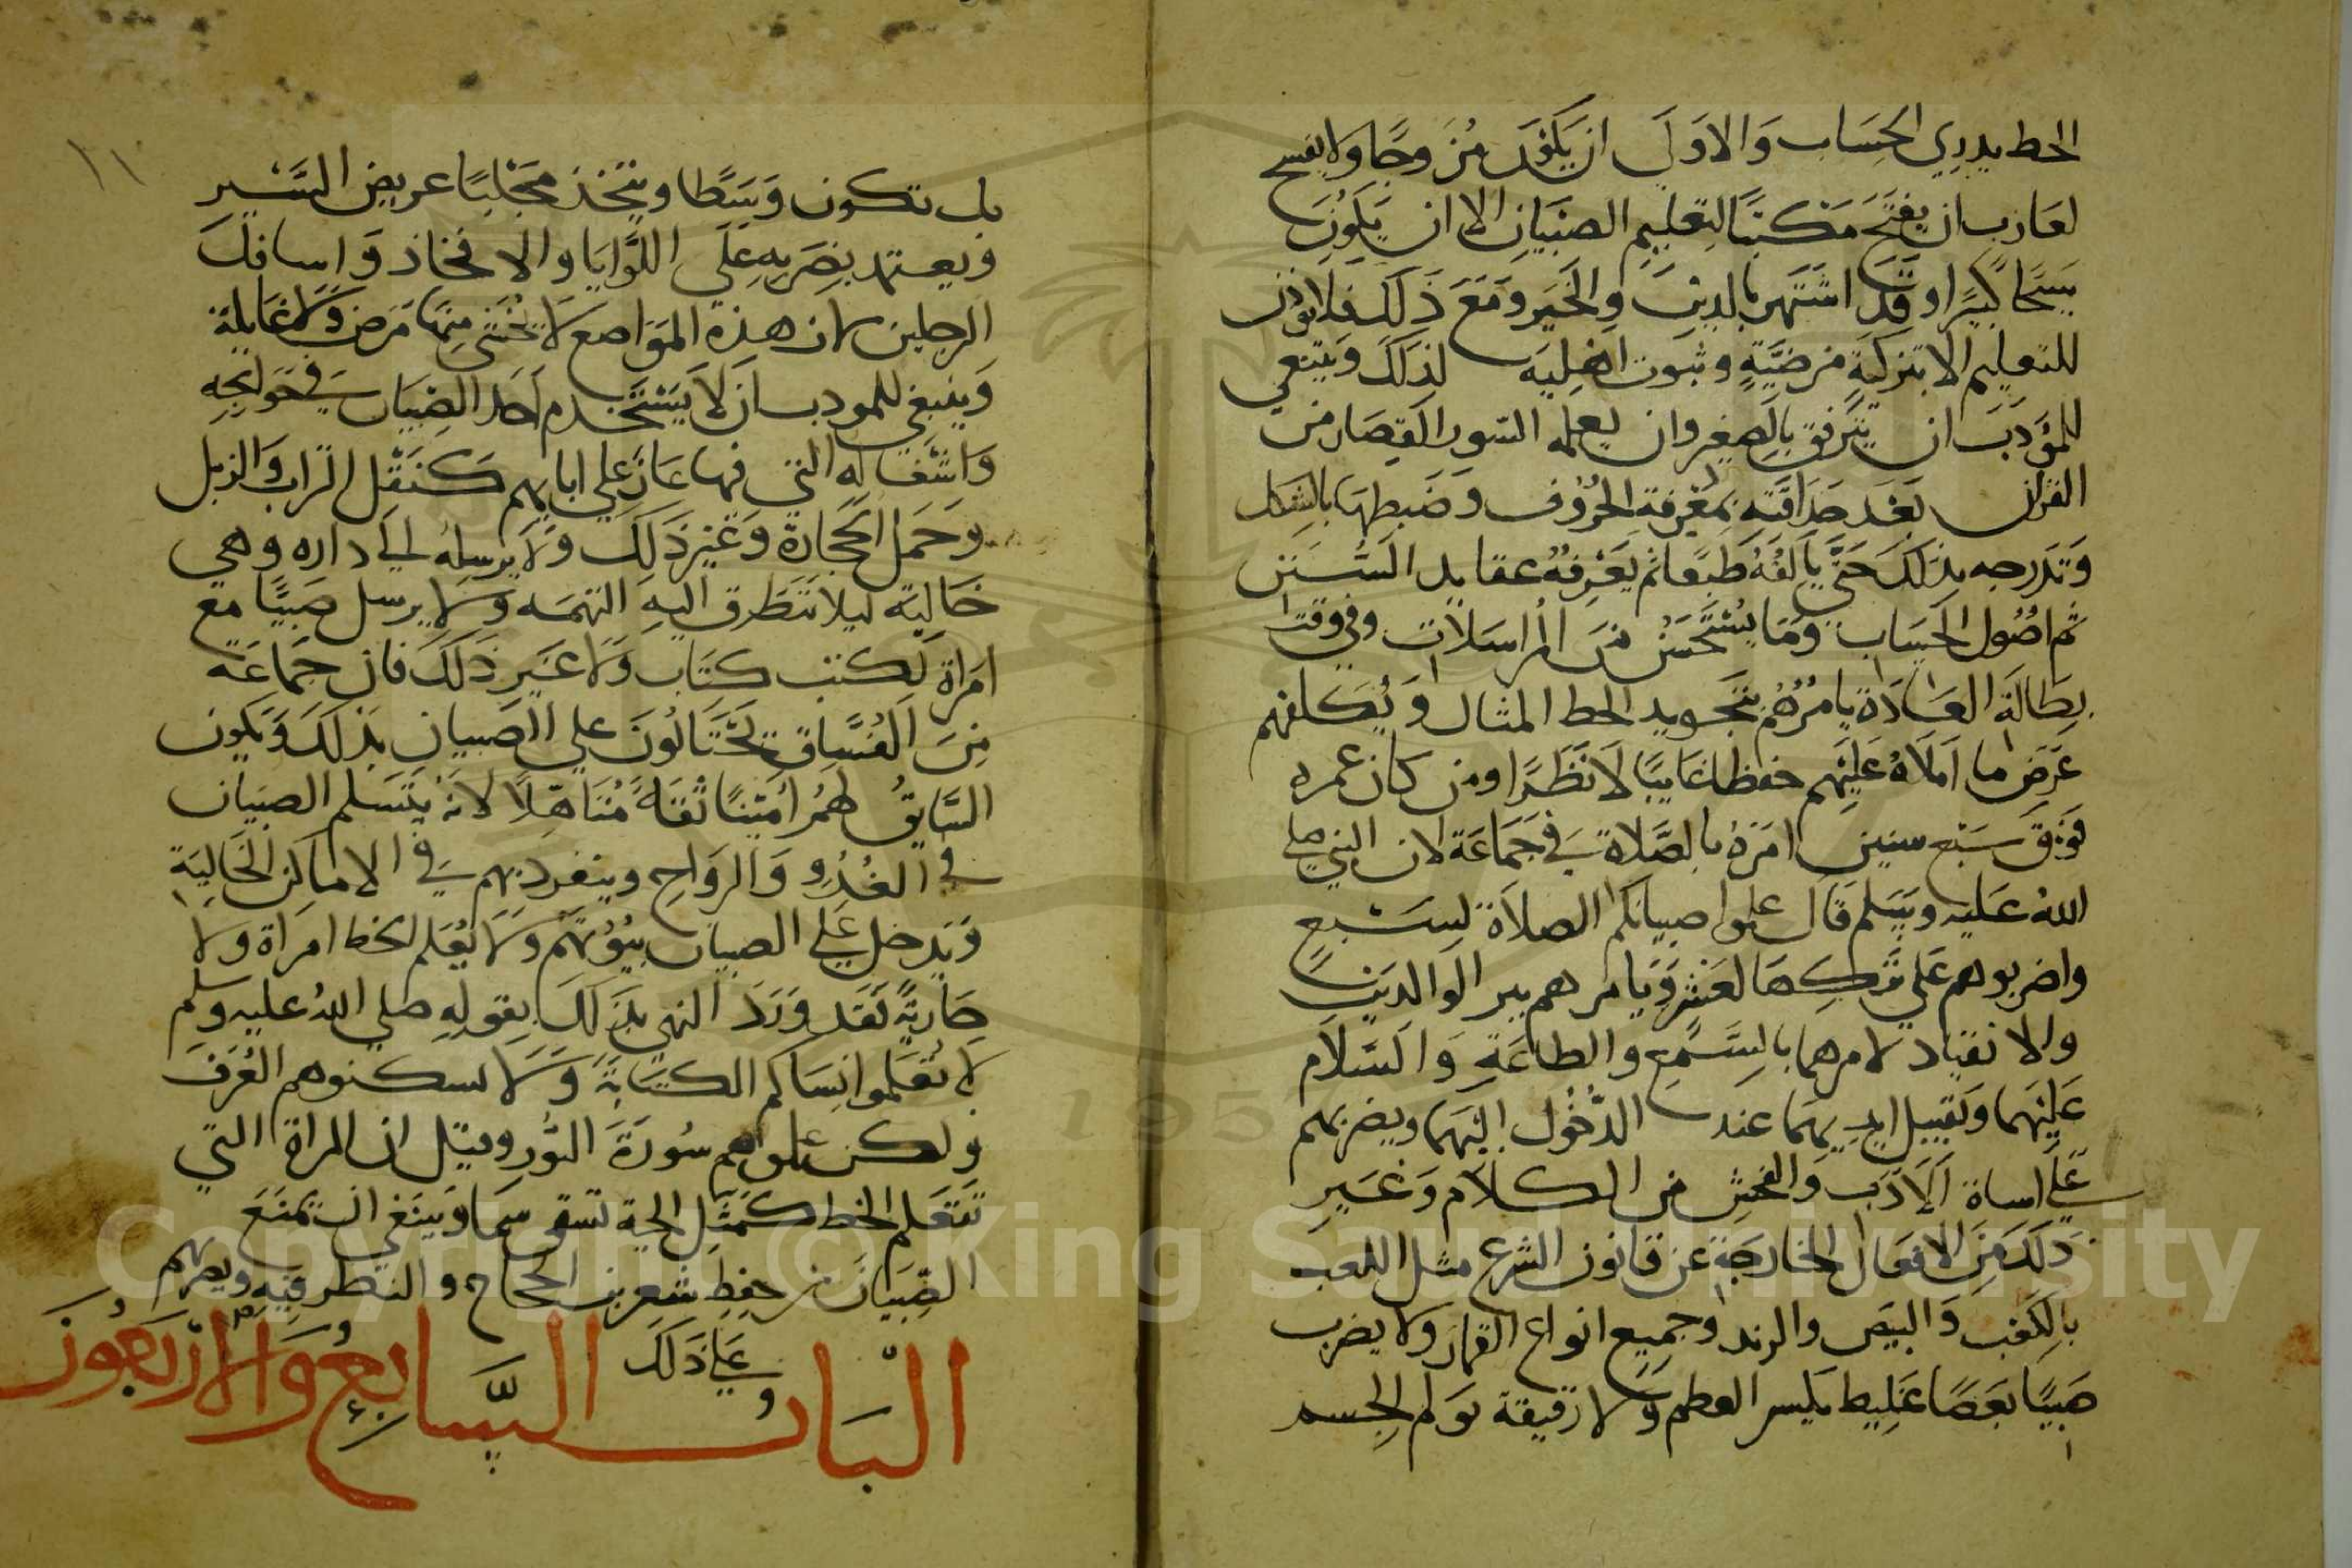 الخط يدري الحِسَاب وَالاوَلَي ان يَكُوَن مُزَوجًا ولا يفسح
لعَازب ان يفتَحَ مَكتبًا لتعليم الصبيَان الا ان يَكُوَن
شيخًا كبيرًا وقد اشتهر بالدين والخَير وَمَعَ ذَلكَ فلا يؤذن
للتعليم الا بتزكيَةٍ مرضيَّةٍ وثبوت اهليَه لذلكَ وَينبغي
للمؤدبَ ان يترفق بالصغير وان يعلمه السّور القِصَار من
القران بَعدَ حذاقته بمعرفة الحرُوف وضبطها بالشكل
وَتدَرجه بذلكَ حَتَّي يَالفَهُ طبعًا ثم يَعَرفهُ عقايد السُّنن
ثم اصُول الحسَاب وَمَا يُسْتَحسَنُ مَن المراسَلات وفي وقت
بِطَالَة العَادَة يامرُهُم بتجويد الخط المثال وَيُكلفهم
عَرَضَ ما املاهُ عَليَهم حفظا غايبًا لا نَظَرًا ومن كان عمره
فوَق سَبْع سنين امَرهُ بالصَّلاة في جَمَاعَة لان النبي صلي
اللهُ عَليَه وسَلم قَال علموا صبيانكم الصلاَة لِسَبعٍ
واضربوهم عَلي تركهَا لعَشر وَيَامرهم ببر الوالدَين
والانقيَاد لامرهما بالسَّمع والطاعَةِ وَالسَلام
عَليَهما وَتقبيل ايديهمَا عند الدُّخُول اليَهمَا ويضربهم
عَلَي اساة الاَدَب وَالفحش من الكلاَم وَغَيرِ
ذلَكَ مَنَ الافعَال الخارجَة عَن قانون الشرع مثل اللعب
بالكَعْب وَالبيَض والرند وجميع انواع القمَار ولا يضرب
صَبيًا بعَصًا غَليظ يكسر العظم وَلا رقيقة تولم الجسم
بل تكون وَسَطًا ويتخذ مجَلبًا عريض السَّيرِ
وَيعتمد بضَربهِ عَلَي اللَّوَايَا والافخاذ وَاسافلَ
الرجلين لان هذه المَوَاضع لا يخشَي مِنهَا مَرض وَلا غايلة
وَينبغي للمودب ان لا يَسْتَخدم اَحَد الصبيَان في حَوَايجه
وَاشغَاله التي فيها عَارٌ عَلي ابايهم كنَقْل التراب وَالزبل
وحَمَل الحجَارة وَغير ذَلَكَ وَلا يرسلهُ الي داره وهي
خَاليَة ليلا تتَطَرق اليَهِ التهمَه وَلا يرسل صَبيًا مَع
امَرَاة لكتب كتَاب وَلا غَيَرِ ذَلَكَ فان جمَاعَة
مِنَ الفُسَّاق يحتَالُونَ علي الصَبيان بذلَكَ وَيَكون
السَّايقُ لهمُ امَينًا ثقَةً مُتَاهّلاً لانهُ يتَسَلم الصبيان
في الغُدُو وَالرَواح وينفرد بهم في الامَاكن الخَاليَة
وَيدخل عَلَي الصبيان بيُوُتهَم وَلا يُعَلم الخط امرَاة وَلا
جَاريَةً فَقَد وَرَدَ النهي بذَلكَ بقوله صلي اللهُ عليه وسلم
لا تُعَلموا نسَاكم الكتَابَةَ وَلا تسكنوهم الغُرَف
ولكن علموهم سُورَة النُّور وقيل ان المراة التي
تتَعَلم الخط كمَثل الحية تسقي سمَا وَينبَغي ان يمنَعَ
الصِّبيَانَ من حِفظِ شعر بن الحجاج والنظر فيه ويضربهم
عَلي ذَلَكَ
البَابُ السَّابعُ وَالاَربَعُونَ